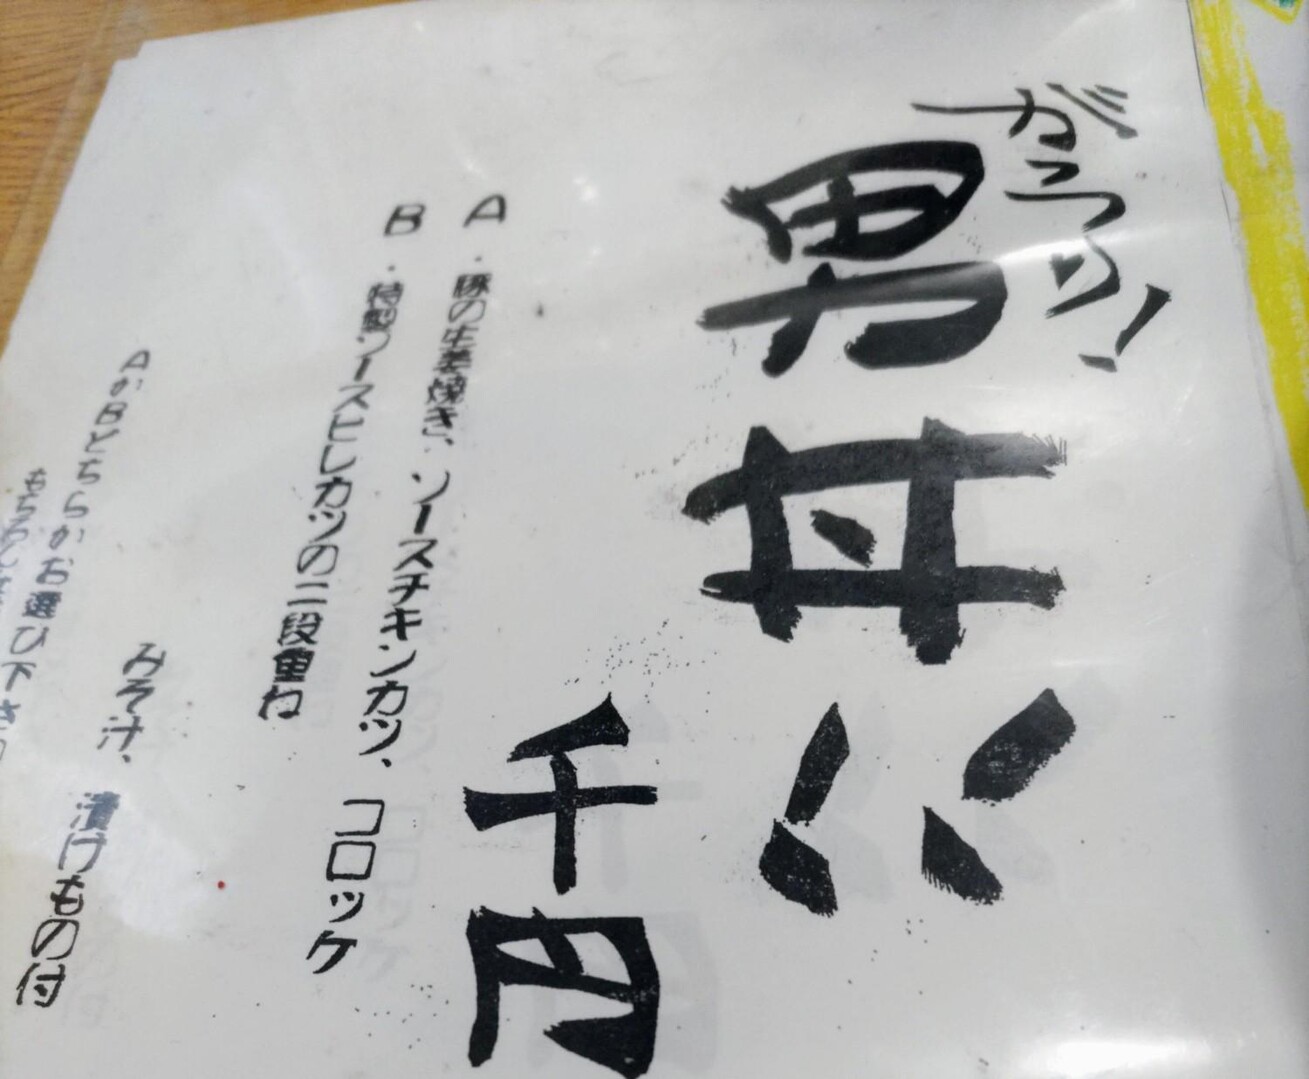 がっつり!
男丼
千円
A・豚の生姜焼き、ソースチキンカツ、コロッケ
B・特製ソースヒレカツの二段重ね
みそ汁、漬けもの付
AかBどちらかお選び下さい